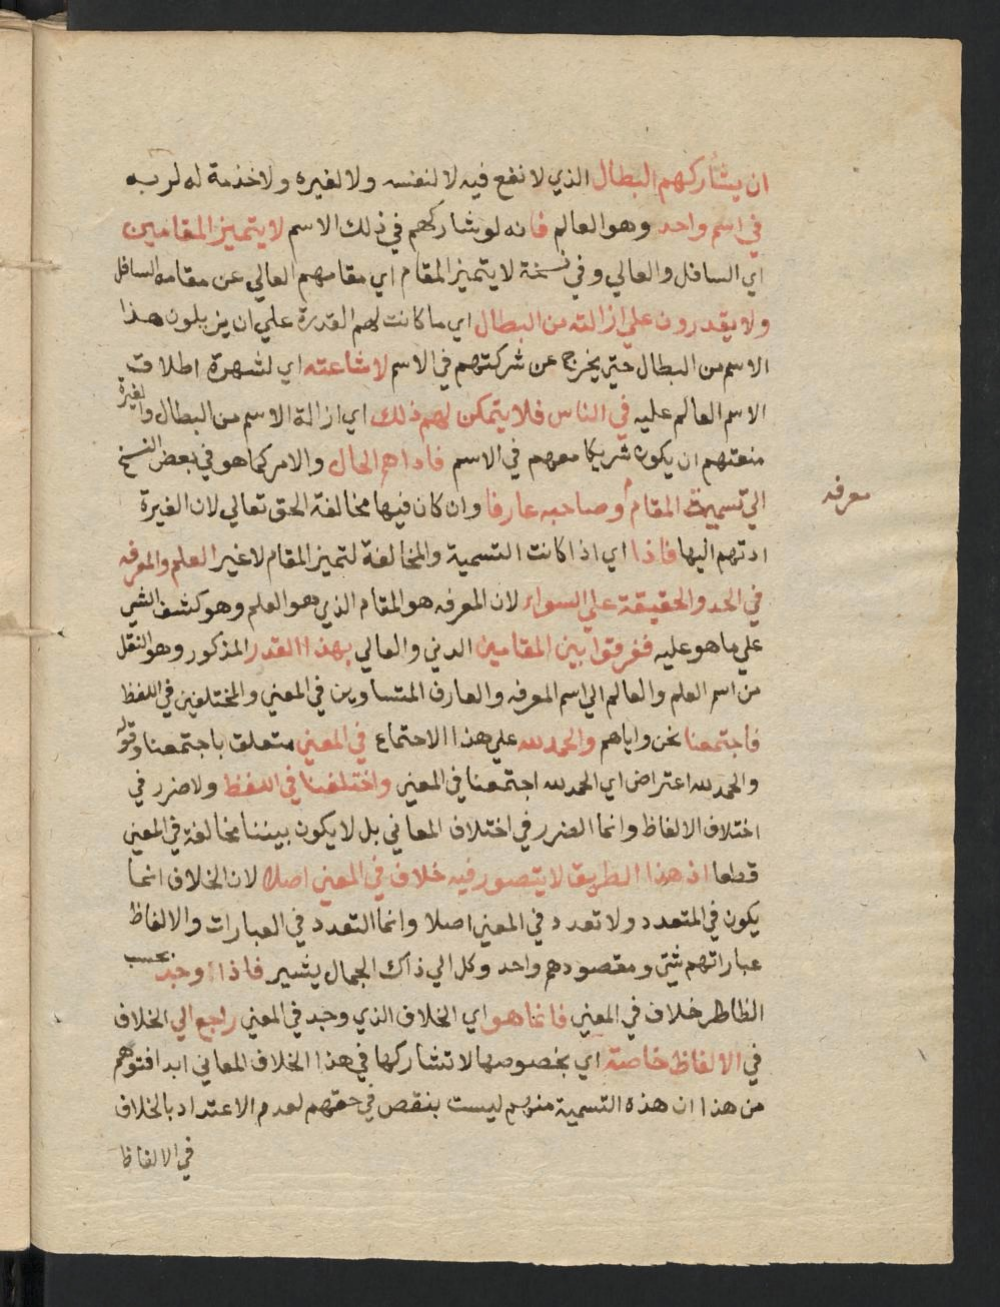 ان يشاركهم البطال الذي لا نفع فيه لا لنفسه ولا لغيره ولا خذمة له لربه
في اسم واحد وهو العالم فانه لو شاركهم في ذلك الاسم لا يتميز المقامين
اي السافل والعالي وفي نسخة لا يتميز المقام اي مقامهم العالي عن مقامه السافل
ولا يقدرون علي ازالته من البطال اي ما كانت لهم القدرة علي ان يزيلون هذا
الاسم من البطال حتي يخرج عن شركتهم في الاسم لاشاعته اي لشهرة اطلاق
الاسم العالم عليه في الناس فلا يتمكن لهم ذلك اي ازالة الاسم من البطال والغيرة
منعتهم ان يكون شريكا معهم في الاسم فاداهم الحال والامر كما هو في بعض النسخ
الي تسمية المقام وصاحبه عارفا وان كان فيها مخالفة الحق تعالي لان الغيرة
معرفه
ادتهم اليها فاذا اي اذا كانت التسمية والمخالفة لتميز المقام لا غير العلم والمعرفه
في الحد والحقيقة علي السواء لان المعرفه هو المقام الذي هو العلم وهو كشف الشي
علي ما هو عليه ففرقوا بين المقامين الدني والعالي بهذا القدر المذكور وهو النقل
من اسم العلم والعالم الي اسم المعرفه والعارف المتساوين في المعني والمختلفين في اللفظ
فاجتمعنا نحن واياهم والحمد لله علي هذا الاجتماع في المعني متعلق باجتمعنا وقوله
والحمد لله اعتراض اي الحمد لله اجتمعنا في المعني واختلفنا في اللفظ ولا ضرر في
اختلاف الالفاظ وانما الضرر في اختلاف المعاني بل لا يكون بيننا مخالفة في المعني
قطعا اذ هذا الطريق لا يتصور فيه خلاف في المعني اصلا لان الخلاف انما
يكون في المتعدد ولا تعدد في المعني اصلا وانما التعدد في العبارات والالفاظ
عباراتهم شتي ومقصودهم واحد وكل الي ذاك الجمال يشير فاذا وجد بحسب
الظاطر خلاف في المعني فانما هو اي الخلاف الذي وجد في المعني راجع الي الخلاف
في الالفاظ خاصة اي بخصوصها لا تشاركها في هذا الخلاف المعاني ابدا فتوهم
من هذا ان هذه التسمية منهم ليست بنقص في حقهم لعدم الاعتداد بالخلاف
في الالفاظ